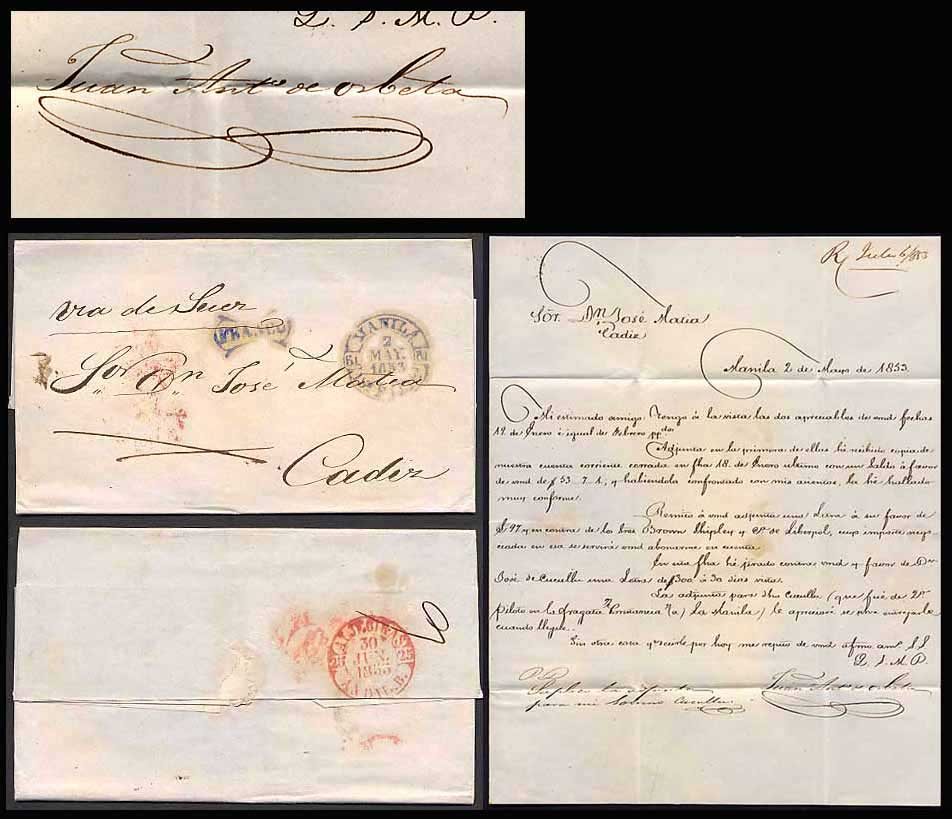 Q. S. M. P.
Juan Anto de Orbeta
via de Suez
FRANCO
MANILA
2
MAY.
1853
Sor Dn José Matia
Cadiz
30
JUN.
1853
Sōr. Dn José Matia
Cadiz
Manila 2 de Mayo de 1853.
Mi estimado amigo. Tengo á la vista las dos apreciables de vmd fechas
12 de Enero é igual de Febrero ppdos
Adjunta en la primera de ellas hé recibido copia de
nuestra cuenta corriente cerrada en fha 18. de Enero ultimo con un Saldo á favor
de vmd de $ 53. 7. 1. y habiendola confrontado con mis asientos, la hé hallado
muy conforme.
Remito á vmd adjunta una Letra á su favor de
£ 97 y en contra de los Sres Brown Shipley y Ca de Liberpol, cuyo importe nego
ciada en esa se servirá vmd abonarme en cuenta.
En esta fha hé jirado contra vmd y favor de Dn
José de Cucullu una Letra de $ 300 á 30 dias vista.
La adjunta para dho Cucullu (que fué de 2º
Piloto en la fragata Constancia (a) La Manila) le apreciaré se sirva entregarla
cuando llegue.
Sin otra cosa qe decirle por hoy me repito de vmd afmo amo S S
Q. S. M. P.
Juan Anto de Orbeta
para mi Sobrino Cucullu.